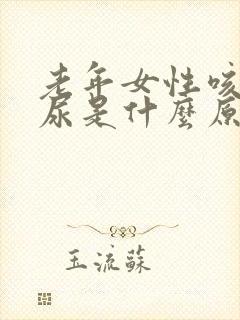 老年女性咳
尿是什麼原
玉流蘇